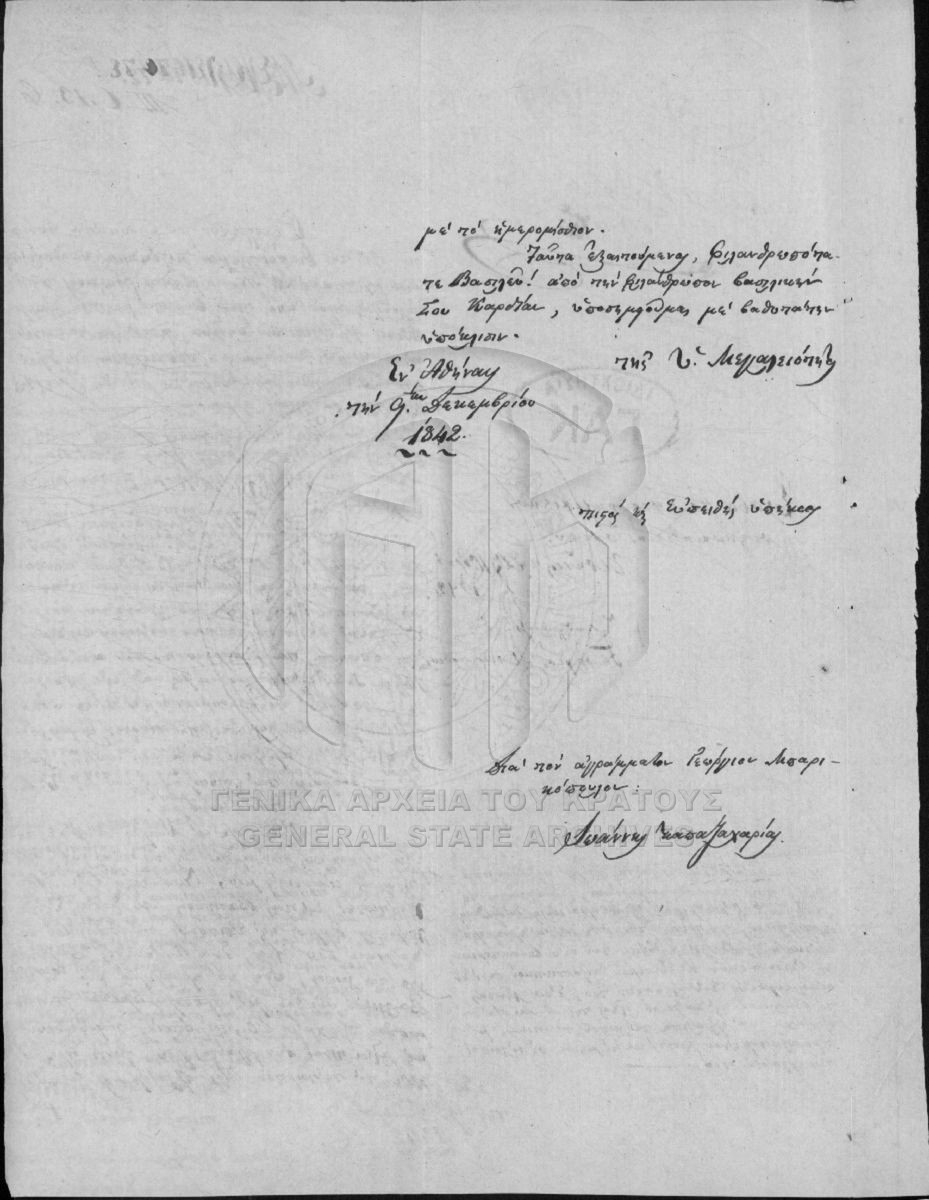 μὲ τὸ ἡμερομίσθιον.
Ταῦτα ἐξαιτούμενος, Φιλανθρωπότα-
τε Βασιλεῦ! ἀπὸ τὴν φιλάνθρωπον βασιλικήν
Σου Καρδίαν, ὑποσημειοῦμαι μὲ βαθυτάτην
ὑπόκλισιν.
Ἐν Ἀθήναις
τὴν 9.ην Δεκεμβρίου
1842.
τῆς Ὑ. Μεγαλειότητος
πιστὸς καὶ εὐπειθὴς ὑπήκοος
Διὰ τὸν ἀγράμματον Γεώργιον Μπαρι-
κόπουλον:
Ἰωάννης Παπαζαχαρίας.
ΓΕΝΙΚΑ ΑΡΧΕΙΑ ΤΟΥ ΚΡΑΤΟΥΣ
GENERAL STATE ARCHIVES